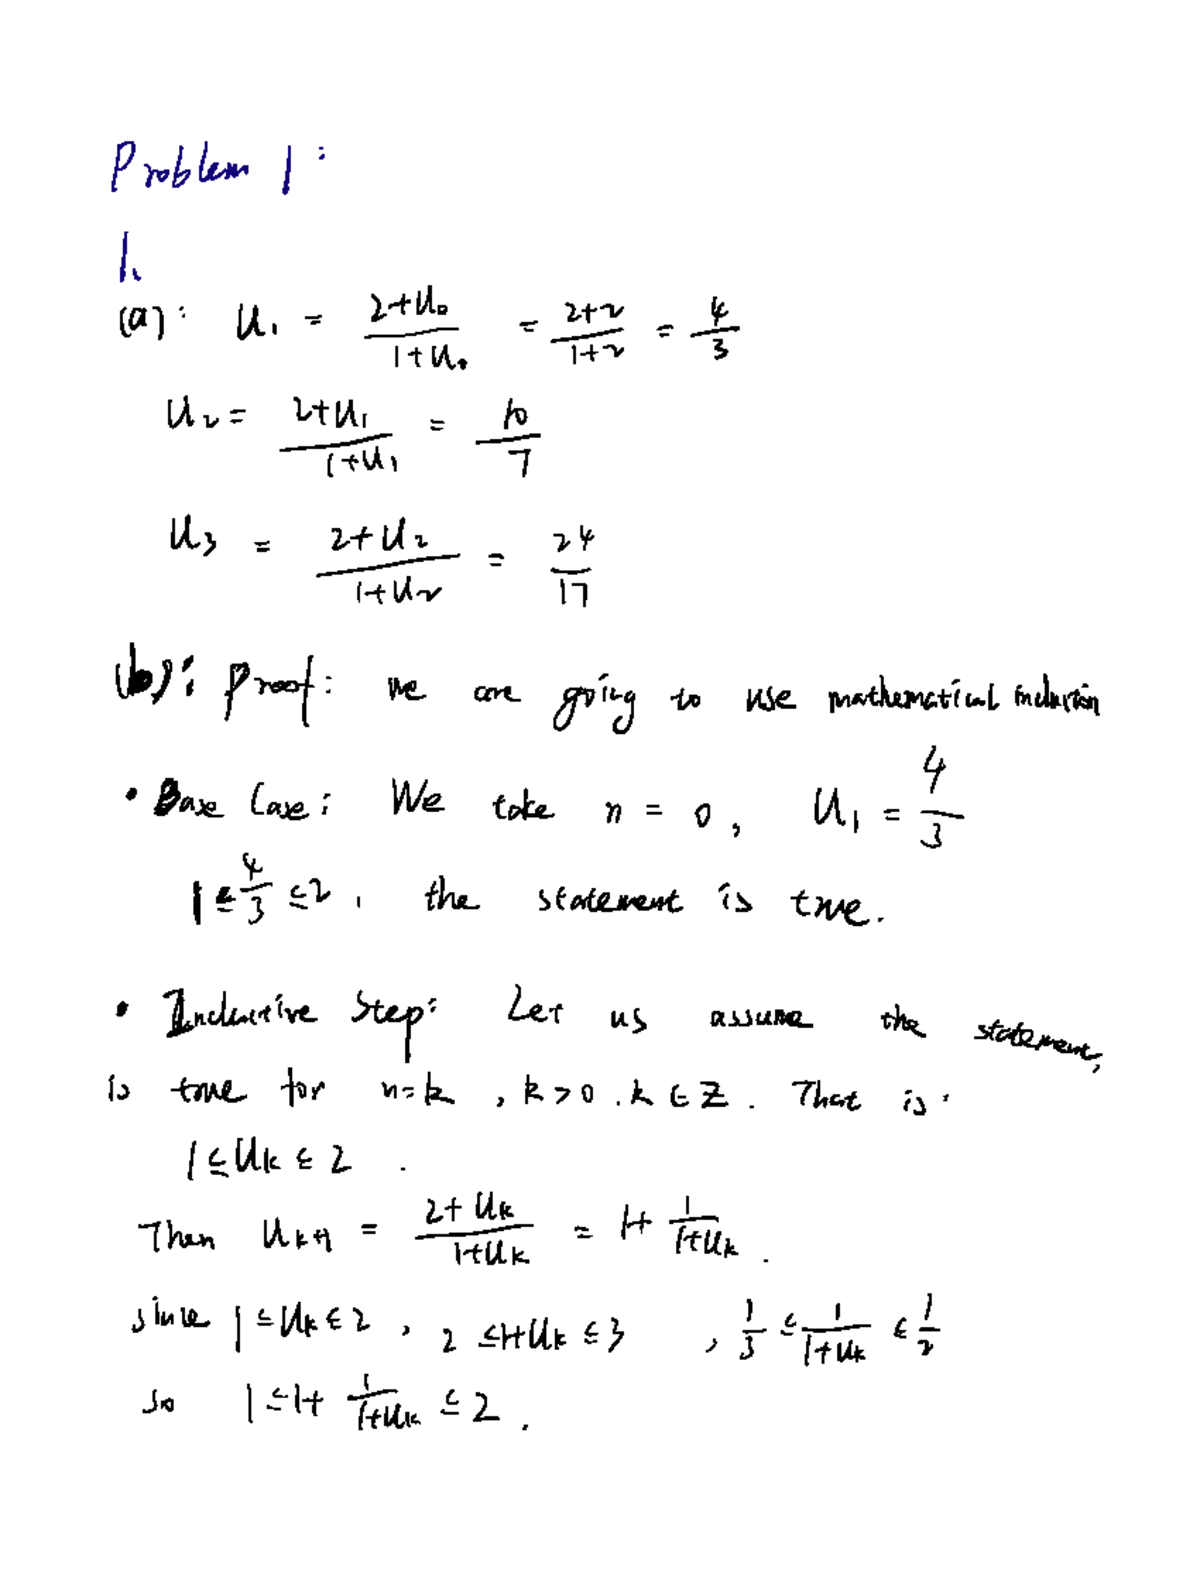 Problem 1:
1.
(a): U₁ = (2+U₀)/(1+U₀) = (2+2)/(1+2) = 4/3
U₂ = (2+U₁)/(1+U₁) = 10/7
U₃ = (2+U₂)/(1+U₂) = 24/17
(b): Proof: we are going to use mathematical induction
• Base Case: We take n = 0, U₁ = 4/3
1 ≤ 4/3 ≤ 2, the statement is true.
• Inductive Step: Let us assume the statement,
is true for n=k, k>0. k ∈ Z. That is:
1 ≤ Uₖ ≤ 2.
Then Uₖ₊₁ = (2+Uₖ)/(1+Uₖ) = 1+ 1/(1+Uₖ).
since 1 ≤ Uₖ ≤ 2, 2 ≤ 1+Uₖ ≤ 3, 1/3 ≤ 1/(1+Uₖ) ≤ 1/2
so 1 ≤ 1+ 1/(1+Uₖ) ≤ 2.